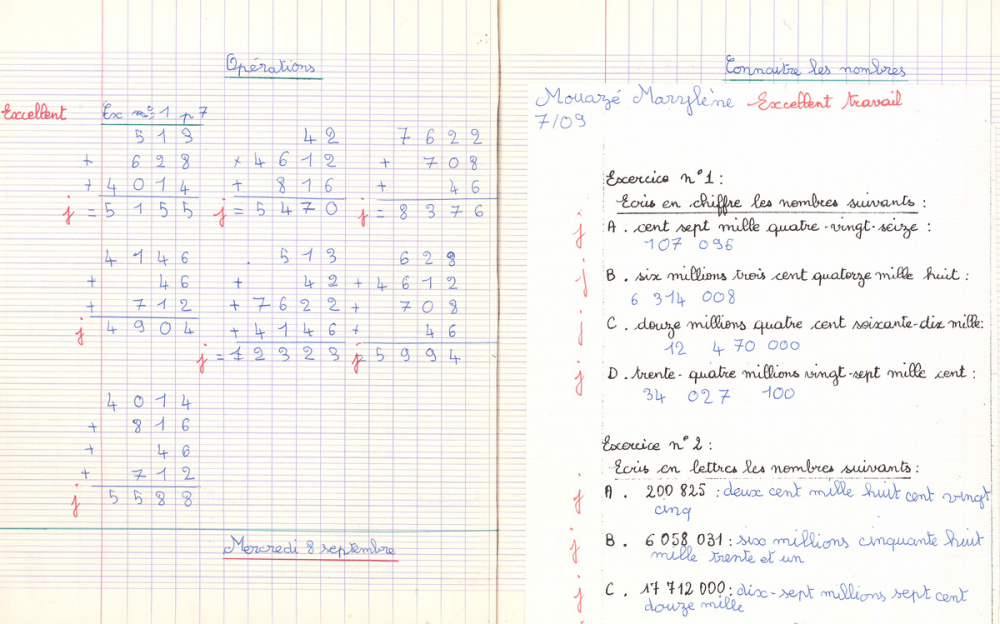 Opérations
Excellent Ex n°1 p7
513 42 7622
+ 628 + 4612 + 708
+ 4014 + 816 + 46
j = 5155 j = 5470 j = 8376
4146 513 628
+ 46 + 42 + 4612
+ 712 + 7622 + 708
j 4904 + 4146 + 46
j = 12323 j = 5994
4014
+ 816
+ 46
+ 712
j 5588
Mercredi 8 septembre
Connaitre les nombres
Mouazé Marylène Excellent travail
7/09
Exercice n°1 :
Ecris en chiffre les nombres suivants :
j A. cent sept mille quatre-vingt-seize :
107 096
j B. six millions trois cent quatorze mille huit :
6 314 008
j C. douze millions quatre cent soixante-dix mille :
12 470 000
j D. trente-quatre millions vingt-sept mille cent :
34 027 100
Exercice n°2 :
Ecris en lettres les nombres suivants :
j A. 200 825 : deux cent mille huit cent vingt
cinq
j B. 6 058 031 : six millions cinquante huit
mille trente et un
j C. 17 712 000 : dix-sept millions sept cent
douze mille